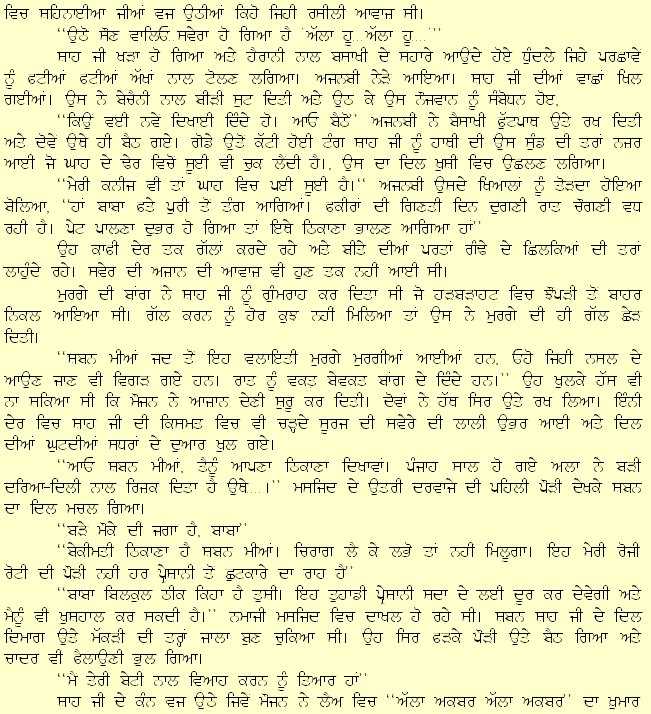 ਵਿਚ ਸਹਿਨਾਈਆ ਜੀਆਂ ਵਜ ਉਠੀਆਂ ਕਿਹੋ ਜਿਹੀ ਰਸੀਲੀ ਆਵਾਜ ਸੀ।
‘‘ਉਠੋ ਸੌਣ ਵਾਲਿਓ..ਸਵੇਰਾ ਹੋ ਗਿਆ ਹੈ ‘ਅੱਲਾ ਹੂ...ਅੱਲਾ ਹੂ....’’’
ਸਾਹ ਜੀ ਖੜਾ ਹੋ ਗਿਆ ਅਤੇ ਹੈਰਾਨੀ ਨਾਲ ਬਸਾਖੀ ਦੇ ਸਹਾਰੇ ਆਉਂਦੇ ਹੋਏ ਧੁੰਦਲੇ ਜਿਹੇ ਪਰਛਾਵੇਂ
ਨੂੰ ਫਟੀਆਂ ਫਟੀਆਂ ਅੱਖਾਂ ਨਾਲ ਟੋਲਣ ਲਗਿਆ। ਅਜਨਬੀ ਨੇੜੇ ਆਇਆ। ਸਾਹ ਜੀ ਦੀਆਂ ਵਾਛਾਂ ਖਿਲ
ਗਈਆਂ। ਉਸ ਨੇ ਬੇਚੈਨੀ ਨਾਲ ਬੀੜੀ ਸੁਟ ਦਿਤੀ ਅਤੇ ਉਠ ਕੇ ਉਸ ਨੌਜਵਾਨ ਨੂੰ ਸੰਬੋਧਨ ਹੋਏ,
‘‘ਕਿਉਂ ਵਈ ਨਵੇਂ ਦਿਖਾਈ ਦਿੰਦੇ ਹੋ। ਆਓ ਬੈਠੋਂ’’ ਅਜਨਬੀ ਨੇ ਬੈਸਾਖੀ ਫੁੱਟਪਾਥ ਉਤੇ ਰਖ ਦਿਤੀ
ਅਤੇ ਦੋਵੇਂ ਉਥੇ ਹੀ ਬੈਠ ਗਏ। ਗੋਡੇ ਉਤੋਂ ਕੱਟੀ ਹੋਈ ਟੰਗ ਸਾਹ ਜੀ ਨੂੰ ਹਾਥੀ ਦੀ ਉਸ ਸੁੰਡ ਦੀ ਤਰਾਂ ਨਜ਼ਰ
ਆਈ ਜੋ ਘਾਹ ਦੇ ਢੇਰ ਵਿਚੋਂ ਸੂਈ ਵੀ ਚੁਕ ਲੈਂਦੀ ਹੈ।, ਉਸ ਦਾ ਦਿਲ ਖੁਸੀ ਵਿਚ ਉਛਲਣ ਲਗਿਆ।
‘‘ਮੇਰੀ ਕਨੀਜ ਵੀ ਤਾਂ ਘਾਹ ਵਿਚ ਪਈ ਸੂਈ ਹੈ।‘‘ ਅਜਨਬੀ ਉਸਦੇ ਖਿਆਲਾਂ ਨੂੰ ਤੋੜਦਾ ਹੋਇਆ
ਬੋਲਿਆ, ‘‘ਹਾਂ ਬਾਬਾ ਫਤੇ ਪੁਰੀ ਤੋਂ ਤੰਗ ਆਗਿਆਂ। ਫਕੀਰਾਂ ਦੀ ਗਿਣਤੀ ਦਿਨ ਦੁਗਣੀ ਰਾਤ ਚੌਗਣੀ ਵਧ
ਰਹੀ ਹੈ। ਪੇਟ ਪਾਲਣਾ ਦੁਭਰ ਹੋ ਗਿਆ ਤਾਂ ਇਥੇ ਠਿਕਾਣਾ ਭਾਲਣ ਆਗਿਆ ਹਾਂ’’
ਉਹ ਕਾਫੀ ਦੇਰ ਤਕ ਗੱਲਾਂ ਕਰਦੇ ਰਹੇ ਅਤੇ ਬੀਤੇ ਦੀਆਂ ਪਰਤਾਂ ਗੰਢੇ ਦੇ ਛਿਲਕਿਆਂ ਦੀ ਤਰਾਂ
ਲਾਹੁੰਦੇ ਰਹੇ। ਸਵੇਰ ਦੀ ਅਜਾਨ ਦੀ ਆਵਾਜ ਵੀ ਹੁਣ ਤਕ ਨਹੀ ਆਈ ਸੀ।
ਮੁਰਗੇ ਦੀ ਬਾਂਗ ਨੇ ਸਾਹ ਜੀ ਨੂੰ ਗੁੰਮਰਾਹ ਕਰ ਦਿਤਾ ਸੀ ਜੋ ਹੜਬੜਾਹਟ ਵਿਚ ਝੌਂਪੜੀ ਤੋਂ ਬਾਹਰ
ਨਿਕਲ ਆਇਆ ਸੀ। ਗੱਲ ਕਰਨ ਨੂੰ ਹੋਰ ਕੁਝ ਨਹੀ ਮਿਲਿਆ ਤਾਂ ਉਸ ਨੇ ਮੁਰਗੇ ਦੀ ਹੀ ਗੱਲ ਛੇੜ
ਦਿਤੀ।
‘‘ਸਬਨ ਮੀਆਂ ਜਦ ਤੋਂ ਇਹ ਵਲਾਇਤੀ ਮੁਰਗੇ ਮੁਰਗੀਆਂ ਆਈਆਂ ਹਨ, ਓਹੋ ਜਿਹੀ ਨਸਲ ਦੇ
ਆਉਣ ਜਾਣ ਵੀ ਵਿਗੜ ਗਏ ਹਨ। ਰਾਤ ਨੂੰ ਵਕਤ ਬੇਵਕਤ ਬਾਂਗ ਦੇ ਦਿੰਦੇ ਹਨ।’’ ਉਹ ਖੁਲਕੇ ਹੱਸ ਵੀ
ਨਾ ਸਕਿਆ ਸੀ ਕਿ ਮੌਜਨ ਨੇ ਆਜਾਨ ਦੇਣੀ ਸ਼ੁਰੂ ਕਰ ਦਿਤੀ। ਦੋਵਾਂ ਨੇ ਹੱਥ ਸਿਰ ਉਤੇ ਰਖ ਲਿਆ। ਇੰਨੀ
ਦੇਰ ਵਿਚ ਸਾਹ ਜੀ ਦੀ ਕਿਸਮਤ ਵਿਚ ਵੀ ਚੜ੍ਹਦੇ ਸੂਰਜ ਦੀ ਸਵੇਰੇ ਦੀ ਲਾਲੀ ਉਭਰ ਆਈ ਅਤੇ ਦਿਲ
ਦੀਆਂ ਘੁਟਦੀਆਂ ਸਧਰਾਂ ਦੇ ਦੁਆਰ ਖੁਲ ਗਏ।
‘‘ਆਓ ਸਬਨ ਮੀਆਂ, ਤੈਨੂੰ ਆਪਣਾ ਠਿਕਾਣਾ ਦਿਖਾਵਾਂ। ਪੰਜਾਹ ਸਾਲ ਹੋ ਗਏ ਅਲਾ ਨੇ ਬੜੀ
ਦਰਿਆ-ਦਿਲੀ ਨਾਲ ਰਿਜਕ ਦਿਤਾ ਹੈ ਉਥੇ....।’’ ਮਸਜਿਦ ਦੇ ਉਤਰੀ ਦਰਵਾਜੇ ਦੀ ਪਹਿਲੀ ਪੌੜੀ ਦੇਖਕੇ ਸਬਨ
ਦਾ ਦਿਲ ਮਚਲ ਗਿਆ।
‘‘ਬੜੇ ਮੌਕੇ ਦੀ ਜਗਾ ਹੈ, ਬਾਬਾ’’
‘‘ਬੇਕੀਮਤੀ ਠਿਕਾਣਾ ਹੈ ਸਬਨ ਮੀਆਂ। ਚਿਰਾਗ ਲੈ ਕੇ ਲਭੋ ਤਾਂ ਨਹੀ ਮਿਲੂਗਾ। ਇਹ ਮੇਰੀ ਰੋਜੀ
ਰੋਟੀ ਦੀ ਪੌੜੀ ਨਹੀ ਹਰ ਪ੍ਰੇਸਾਨੀ ਤੋਂ ਛੁਟਕਾਰੇ ਦਾ ਰਾਹ ਹੈ’’
‘‘ਬਾਬਾ ਬਿਲਕੁਲ ਠੀਕ ਕਿਹਾ ਹੈ ਤੁਸੀਂ। ਇਹ ਤੁਹਾਡੀ ਪ੍ਰੇਸਾਨੀ ਸਦਾ ਦੇ ਲਈ ਦੂਰ ਕਰ ਦੇਵੇਗੀ ਅਤੇ
ਮੈਨੂੰ ਵੀ ਖੁਸਹਾਲ ਕਰ ਸਕਦੀ ਹੈ।’’ ਨਮਾਜੀ ਮਸਜਿਦ ਵਿਚ ਦਾਖਲ ਹੋ ਰਹੇ ਸੀ। ਸਬਨ ਸਾਹ ਜੀ ਦੇ ਦਿਲ
ਦਿਮਾਗ ਉਤੇ ਮੱਕੜੀ ਦੀ ਤਰ੍ਹਾਂ ਜਾਲਾ ਬੁਣ ਚੁਕਿਆ ਸੀ। ਉਹ ਸਿਰ ਫੜਕੇ ਪੌੜੀ ਉਤੇ ਬੈਠ ਗਿਆ ਅਤੇ
ਚਾਦਰ ਵੀ ਫੈਲਾਉਣੀ ਭੁਲ ਗਿਆ।
‘‘ਮੈਂ ਤੇਰੀ ਬੇਟੀ ਨਾਲ ਵਿਆਹ ਕਰਨ ਨੂੰ ਤਿਆਰ ਹਾਂ’’
ਸਾਹ ਜੀ ਦੇ ਕੰਨ ਵਜ ਉਤੇ ਜਿਵੇਂ ਮੌਜਨ ਨੇ ਲੈਅ ਵਿਚ ‘‘ਅੱਲਾ ਅਕਬਰ ਅੱਲਾ ਅਕਬਰ’’ ਦਾ ਖੁਮਾਰ